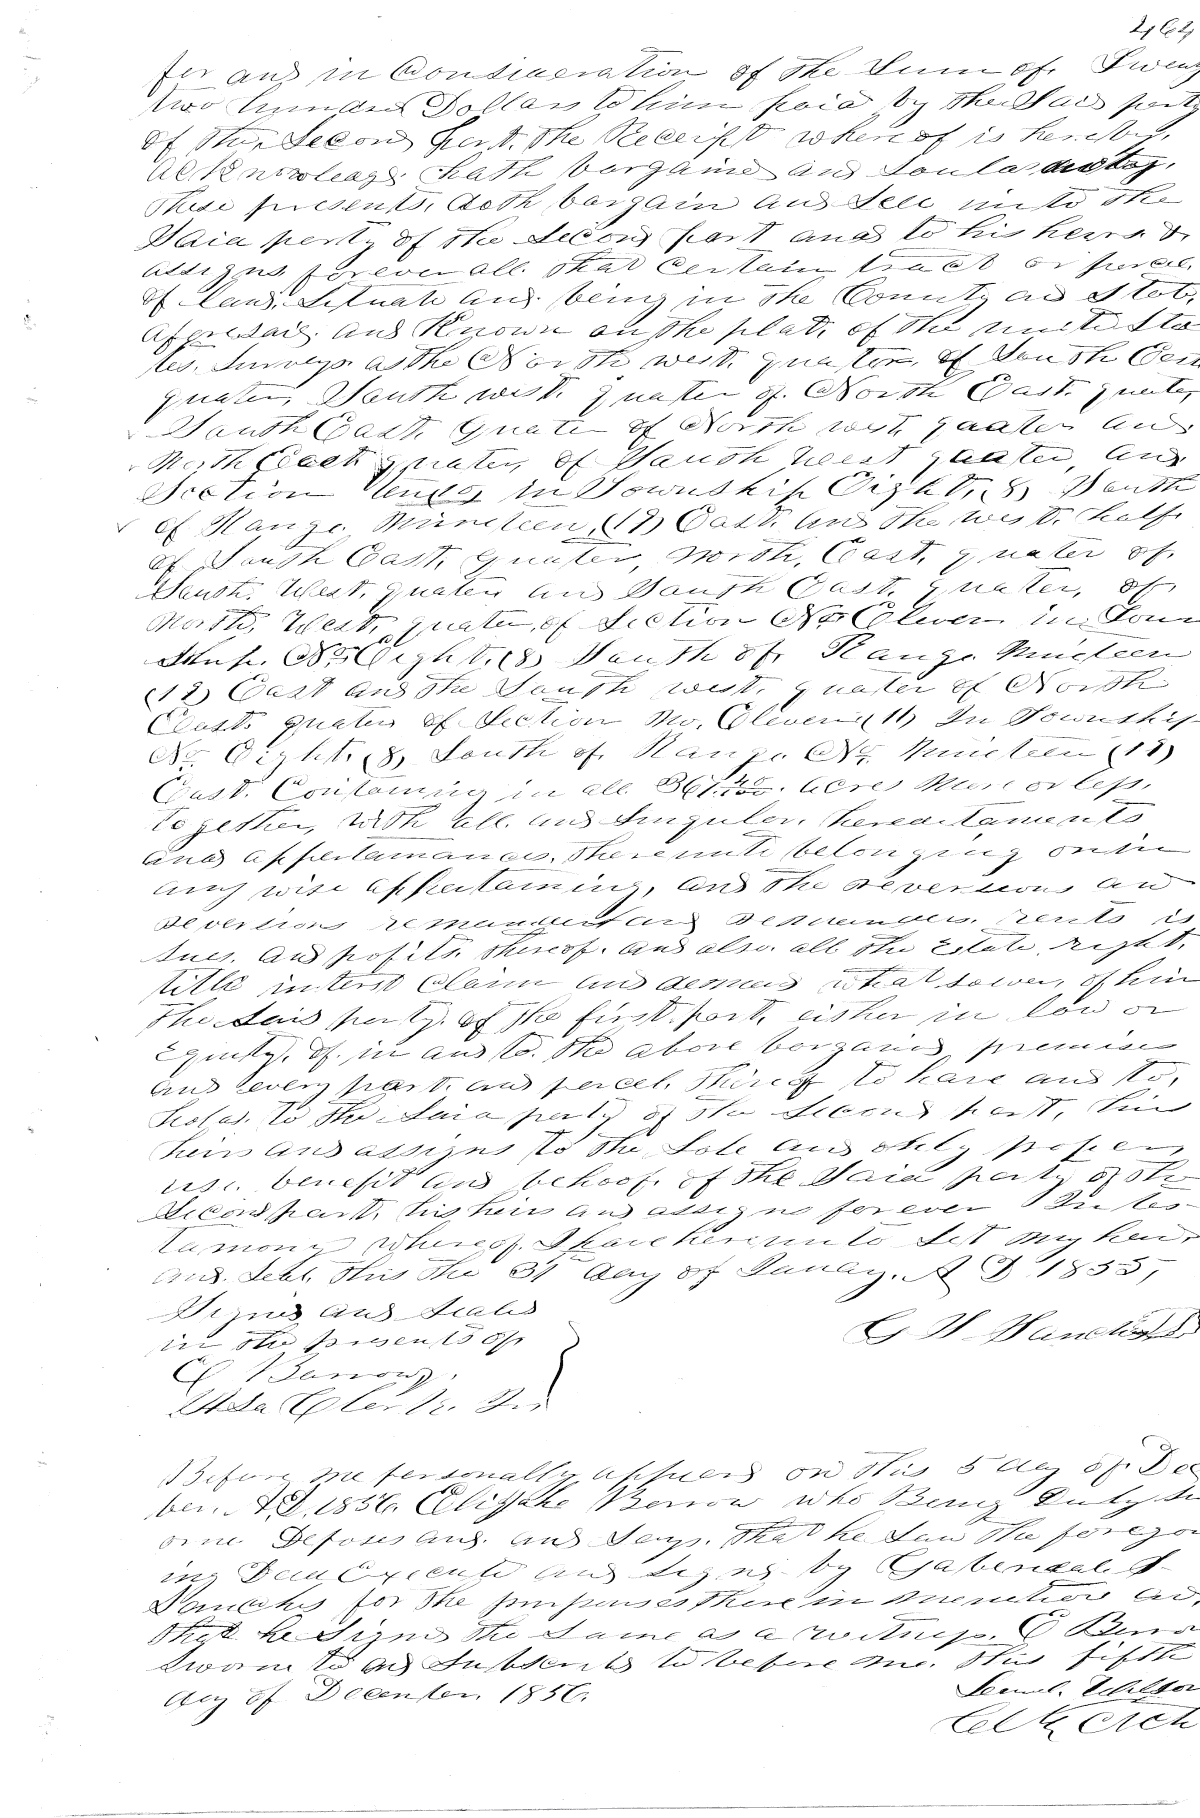 464
for and in Consideration of the Sum of Twenty
two hundred Dollars to him paid by the Said party
of the Second part, the Receipt where of is hereby
acknowledge hath bargained and Sould and by
these presents, doth bargain and Sell unto the
Said perty of the Second part and to his hears &
assigns forever all that certain tract or percel
of land Situate and being in the County and State
aforesaid, and Known on the plat, of the unite Sta
tes. Surveys as the North west, quater of South East
quater, South west, quater of North East quater
South East, quater of North west, quater and
North East quater, of South West quater, and
Section in Township Eight, (8) South
of Range Nineteen, (19) East and the west, half
of South East, quater, North, East, quater of
South. West, quater and South East, quater, of
North, West, quater, of Section No Eleven in Town
Ship No Eight, (8) South of Range Nineteen
(19) East and the South west, quater of North
East quater of Section No, Eleven (11) In Township
No Eight, (8) South of Range No Nineteen (19)
East. Containing in all 361 40/100 acres More or less.
together, with all and Singuler, hereditaments
and appertainances, thereunto belonging or in
any wise appertaining, and the reversions and
reversions remainder and remainders rents is
sues. and pofits thereof. and also all the Estate right,
title interst Claim and demand what sower, of him
the Said perty of the first part, either in low or
Equity, of. in and to the above bargained premises
and every part, and percel, thereof to have and to,
hold to the Said perty of the Second part, his
heirs and assigns to the Sole and only proper
use, benefit and behoof of the Said party of the
Second part, his heirs and assigns forever In tes-
tamony whereof I have hereunto Set my hand
and Seal this the 31 day of Januay. A D 1855,
Signed and Sealed
in the presents of
E Barrow
G W
Before me personally appeard on this 5 day of Decem
ber. A.D. 1856. Elijah Berrow who Being Duly Sw
orne Deposes and and Says. that he Saw the foregoi
ing Deed Execute and Signed by
for the purpenses there in mention and
that he Signed the Same as a witness. E Berrow
Sworn to and Subscribed to before me. this fifth
day of December 1856.
Clk